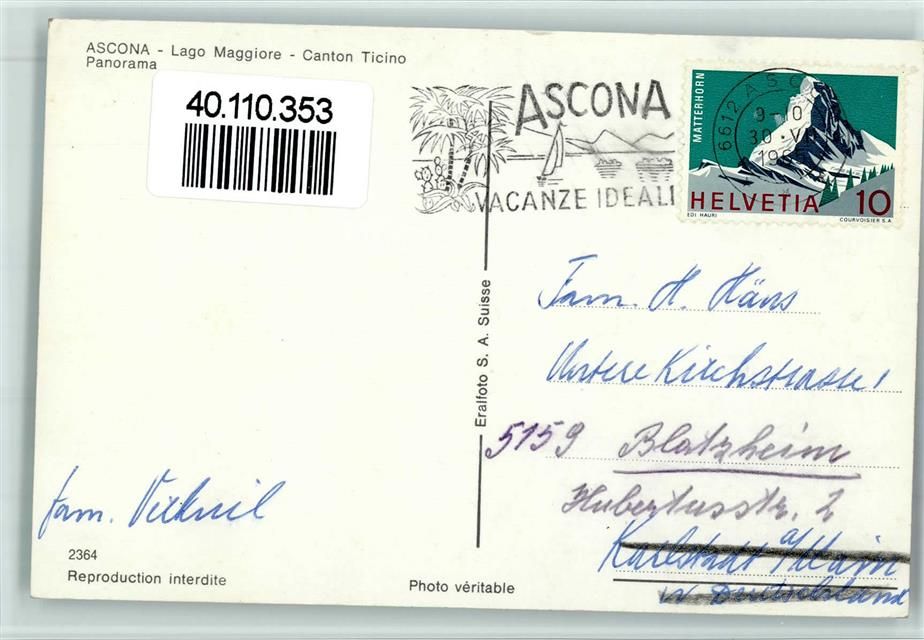 ASCONA - Lago Maggiore - Canton Ticino
Panorama
40.110.353
ASCONA
VACANZE IDEALI
6612 ASCO
9-10
30·V
196
MATTERHORN
HELVETIA 10
EDI HAURI
COURVOISIER S.A.
Eralfoto S. A. Suisse
Fam. H. Häns
Untere Kirchstrasse 1
5159 Blatzheim
Hubertusstr. 2
Karlstadt a/Main
in Deutschland
fam.
2364
Reproduction interdite
Photo véritable